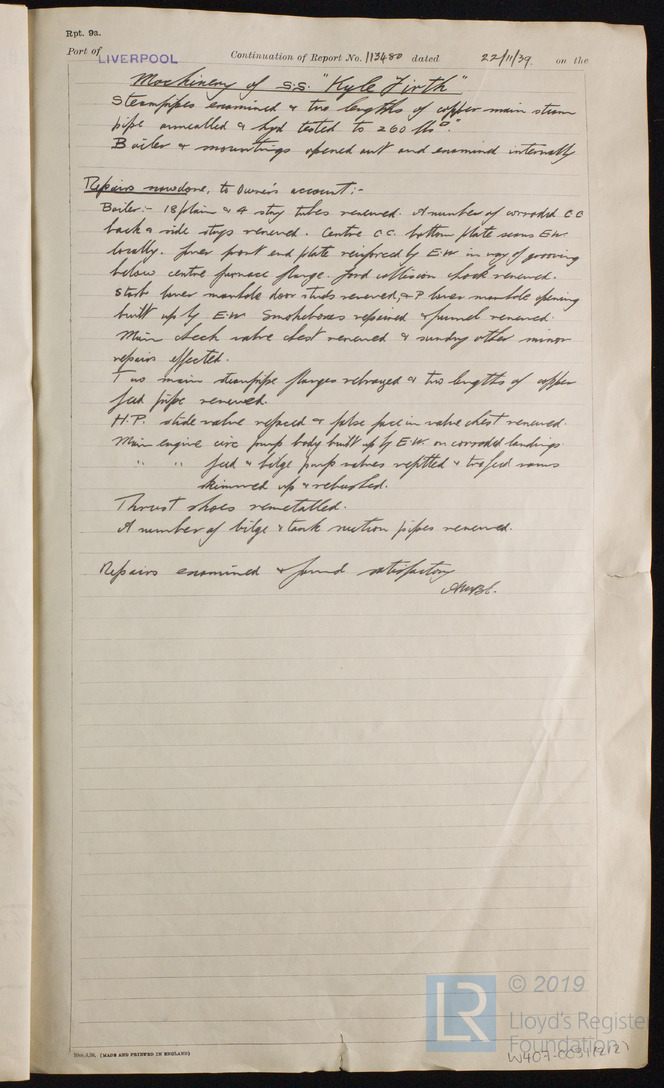 Rpt. 9a.
Port of LIVERPOOL Continuation of Report No. 113480 dated 22/11/39. on the
Machinery of S.S. "Kyle Firth"
Steampipes examined & two lengths of copper main steam
pipe annealled & hyd tested to 260 lbs□".
Boiler & mountings opened out and examined internally
Repairs now done, to Owner's account:-
Boiler:- 18 plain & 4 stay tubes renewed. A number of corroded C C
back & side stays renewed. Centre C.C. bottom plate seams E.W.
locally. Lower front end plate reinforced by E.W. in way of grooving
below centre furnace flange. Ford collision chock renewed.
Starb lower manhole door studs renewed, & P lower manhole opening
built up by E.W. Smokeboxes repaired & funnel renewed.
Main check valve chest renewed & sundry other minor
repairs effected.
Two main steampipe flanges rebrazed & two lengths of copper
feed pipe renewed.
H.P. slide valve refaced & false face in valve chest renewed.
Main engine circ pump body built up by E.W. on corroded landings.
" " feed & bilge pump valves refitted & two feed rams
skimmed up & rebushed.
Thrust shoes remetalled.
A number of bilge & tank suction pipes renewed.
Repairs examined & found satisfactory
(MADE AND PRINTED IN ENGLAND)
LR © 2019
Lloyd's Register
Foundation